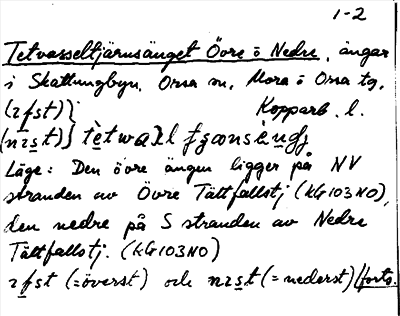 1-2
Tetvasseltjärnsänget Övre o Nedre, ängar
i Skattungbyn, Orsa sn, Mora o Orsa tg,
(ɪfst)} Kopparb. l.
(nɪst)}
Läge: Den övre ängen ligger på NV
stranden av Övre Tättfallstj (KG103NO),
den nedre på S stranden av Nedre
Tättfallstj. (KG103NO)
ɪfst (=överst) och nɪst (=nederst) (forts.